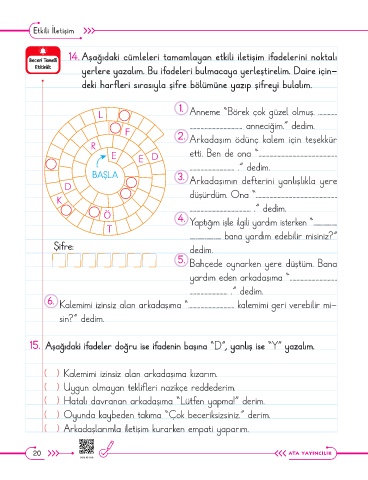 Etkili İletişim
Beceri Temelli
Etkinlik
14. Aşağıdaki cümleleri tamamlayan etkili iletişim ifadelerini noktalı
yerlere yazalım. Bu ifadeleri bulmacaya yerleştirelim. Daire için-
deki harfleri sırasıyla şifre bölümüne yazıp şifreyi bulalım.
L
F
R
E
E D
BAŞLA
D
K
Ö
T
Şifre:
1. Anneme "Börek çok güzel olmuş. ............
.......................... anneciğim." dedim.
2. Arkadaşım ödünç kalem için teşekkür
etti. Ben de ona "......................................
...................... ." dedim.
3. Arkadaşımın defterini yanlışlıkla yere
düşürdüm. Ona "........................................
.............................. ." dedim.
4. Yaptığım işle ilgili yardım isterken "............
................ bana yardım edebilir misiniz?"
dedim.
5. Bahçede oynarken yere düştüm. Bana
yardım eden arkadaşıma "........................
.................... ." dedim.
6. Kalemimi izinsiz alan arkadaşıma "........................ kalemimi geri verebilir mi-
sin?" dedim.
15. Aşağıdaki ifadeler doğru ise ifadenin başına "D", yanlış ise "Y" yazalım.
( ) Kalemimi izinsiz alan arkadaşıma kızarım.
( ) Uygun olmayan teklifleri nazikçe reddederim.
( ) Hatalı davranan arkadaşıma "Lütfen yapma!" derim.
( ) Oyunda kaybeden takıma "Çok beceriksizsiniz." derim.
( ) Arkadaşlarımla iletişim kurarken empati yaparım.
20
ATA YAYINCILIK